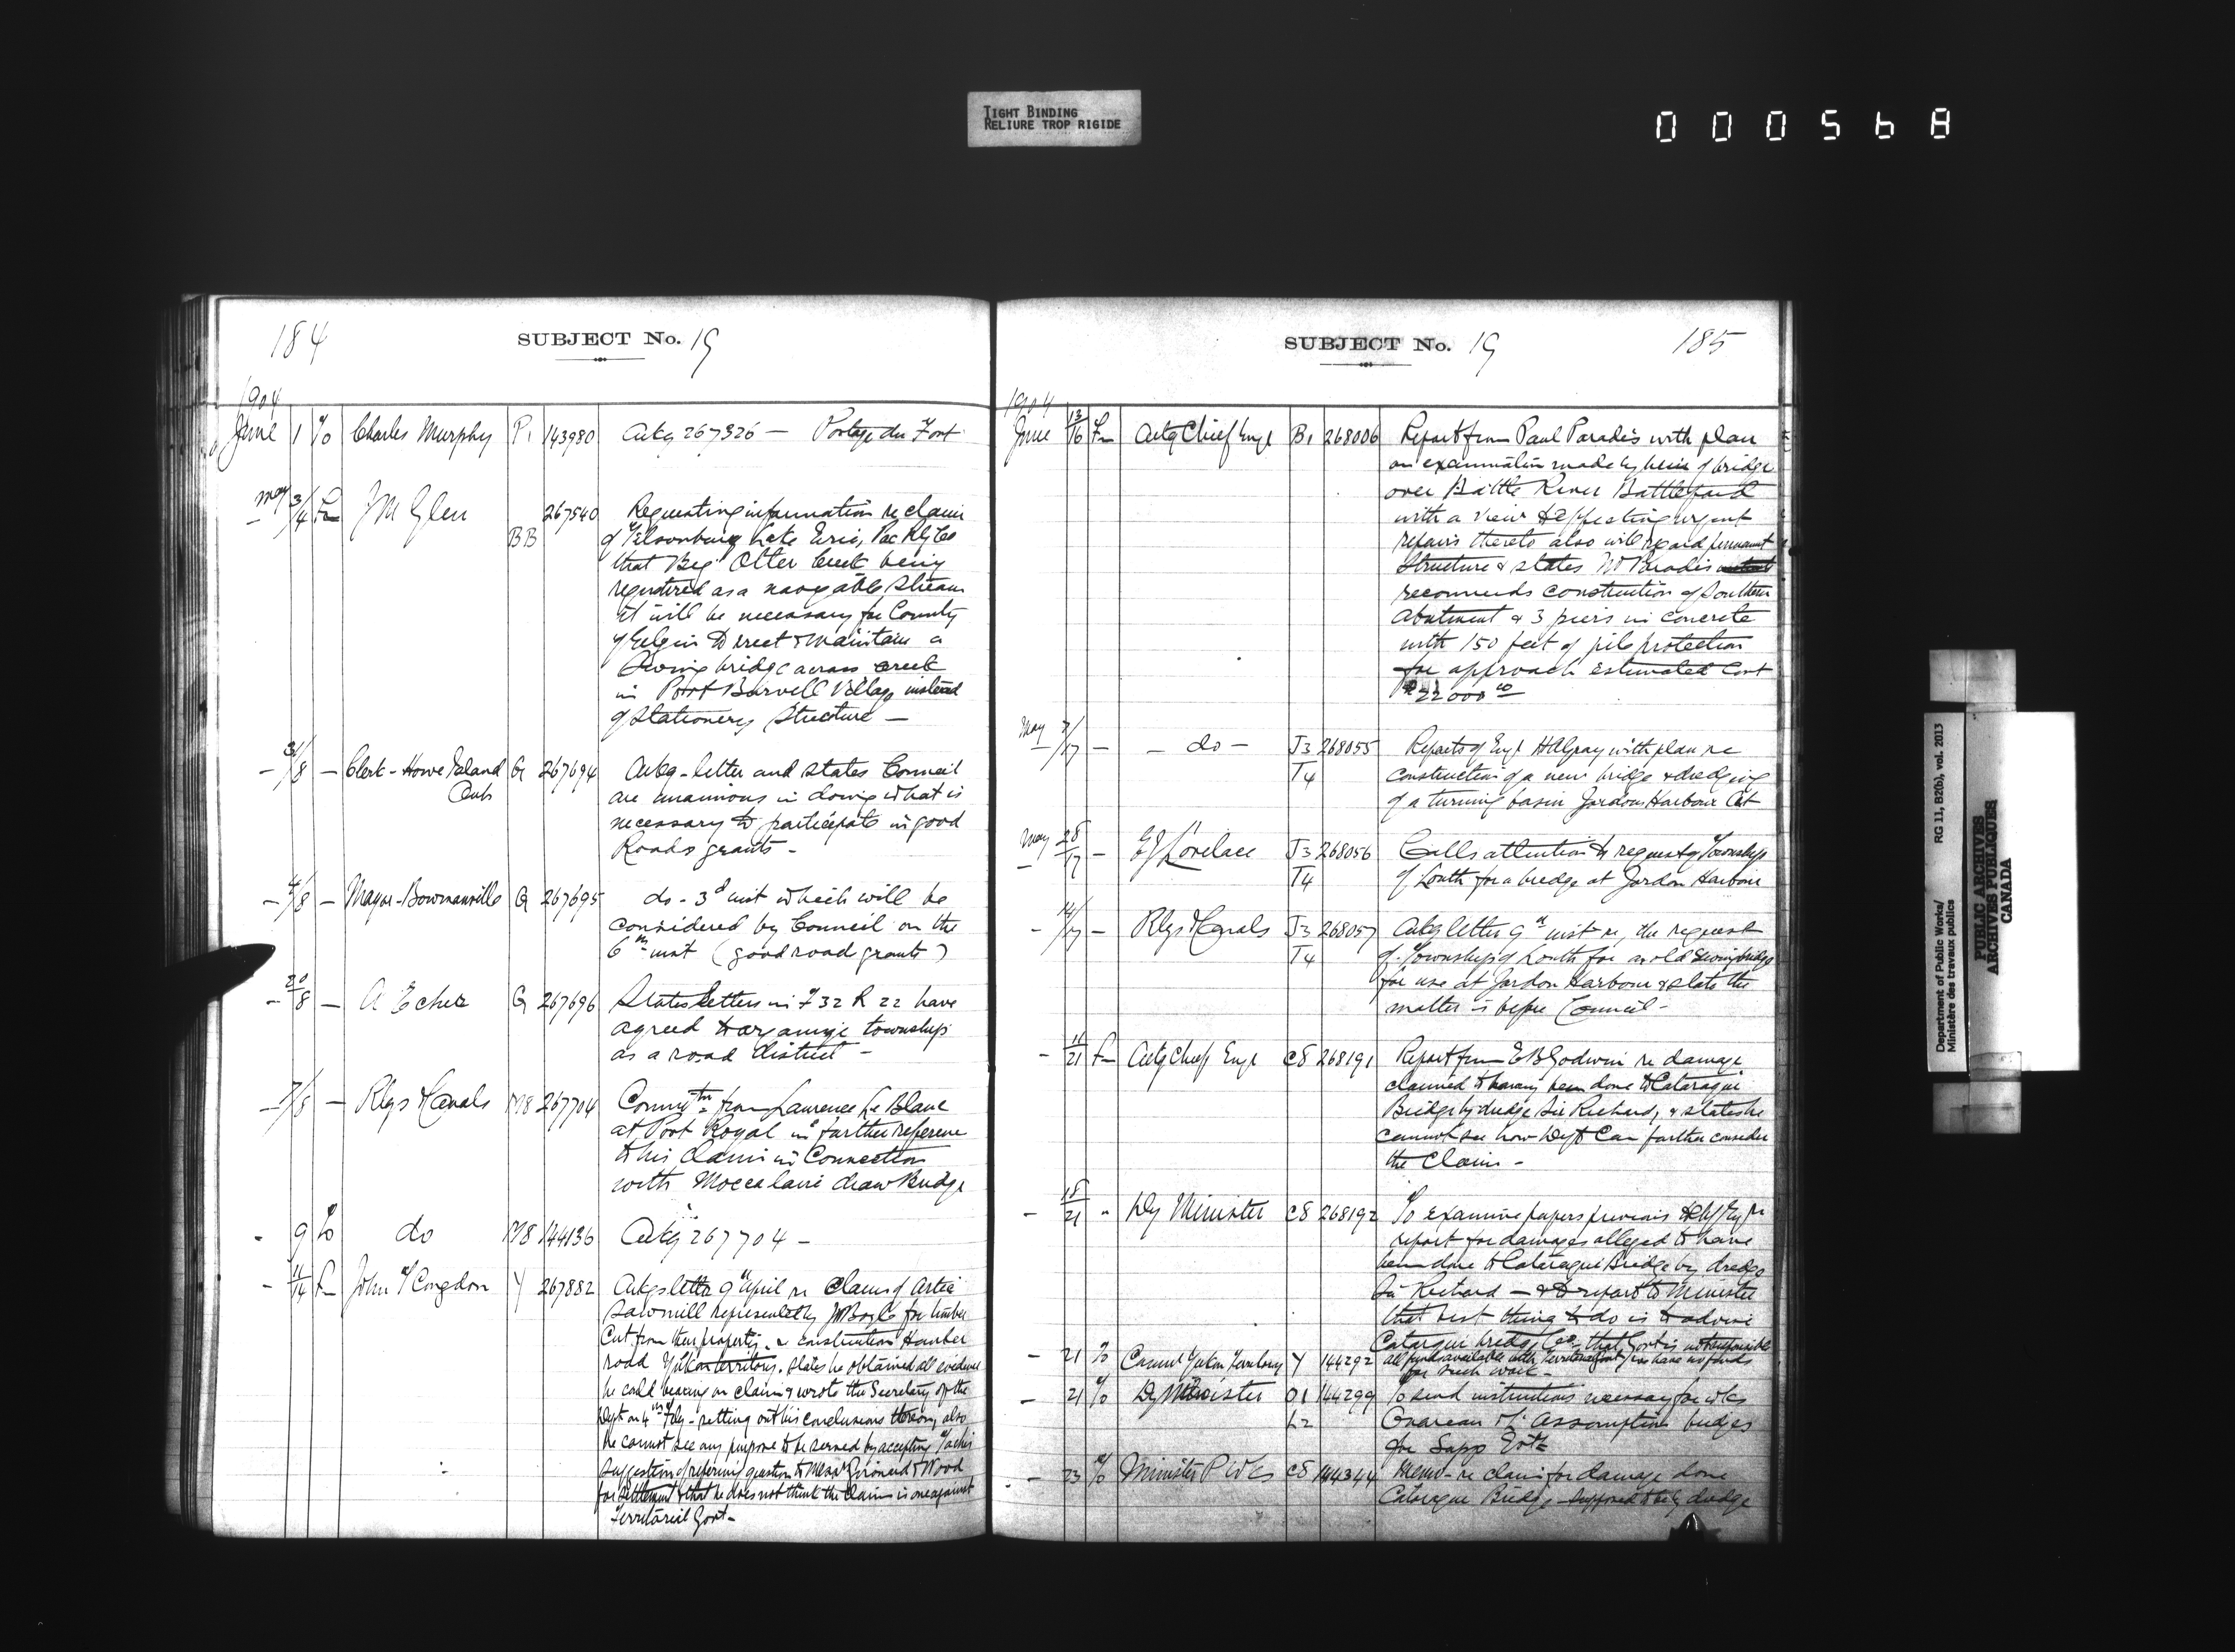 TIGHT BINDING
RELIURE TROP RIGIDE
000568
184
SUBJECT No. 19
1904
June 1 To Charles Murphy P1 143980 Ackg 267326 — Portage du Fort
May 3/4 Fm J M Glen BB 267540 Requesting information re claim
of Tilsonburg Lake Erie, Pac Rly Co
that Big Otter Creek being
registered as a navigable stream
it will be necessary for County
of Elgin to erect & maintain a
Swing bridge across creek
in Port Burwell Village instead
of Stationery Structure —
— 31/8 — Clerk - Howe Island G 267694 Ackg - letter and states Council
Ont
are unanimous in doing what is
necessary to participate in good
Roads grants -
— 4/8 — Mayor - Bowmanville G 267695 do - 3d inst which will be
considered by Council on the
6th inst (good road grants)
— 20/8 — G 267696 States letters in 32 R 22 have
agreed to arrange township
as a road district —
— 7/8 — Rlys & Canals M8 267704 from Laurence Le Blanc
at Port Royal in further reference
to his claim in Connection
with draw Bridge
- 9 To do M8 144136 Ackg 267704 —
- 11/14 Fm John T Congdon Y 267882 Ackgs letter 9 April re Claim of
Sawmill represented by for timber
Cut from their property, construction
road Yukon territory. States he obtained all evidence
he could bearing on claim & wrote the Secretary of the
Dept on 4th - setting out his conclusions thereon, also
he cannot see any purpose to be served by accepting
suggestion of referring question to & Wood
for settlement & that he does not think the Claim is one against
Territorial Govt -
SUBJECT No. 19
185
1904
June 13/16 Fm Actg Chief Engr B1 268006 Report from Paul Paradis with plan
on examination made by him of bridge
over Battle River Battleford
with a view to effecting urgent
repairs thereto also with regard permanent
Structure & states Mr Paradis
recommends construction of Southern
Abutment & 3 piers in concrete
with 150 feet of pile protection
for approach estimated Cost
$22000 00
May 7/17 — — do — J3 268055 Reports of Engr H A Gray with plan re
T4
construction of a new bridge & dredging
of a turning basin Jordon Harbour Ont
May 28/17 — E J Lovelace J3 268056 Calls attention to request of Township
T4
of Louth for a bridge at Jordon Harbour
- 14/17 — Rlys & Canals J3 268057 Ackg letter 9th inst re, the request
T4
of Township of Louth for an old Swing bridge
for use at Jordon Harbour & state the
matter is before Council -
- 11/21 Fm Actg Chief Engr C8 268191 Report from E B Godwin re damage
claimed to having been done to Cataraqui
Bridge by dredge Sir Richard, & states he
cannot see how Dept can further consider
the Claim -
- 18/21 " Dy Minister C8 268192 To examine papers previous
report for damages alleged to have
been done to Cataraqui Bridge by dredge
Sir Richard — & to report to Minister
that best thing to do is to advise
Cataraqui bridge Coy that Govt is not responsible
- 21 To Commr Yukon Territory Y 144292 all funds available with Territorial Govt have no funds
for such work -
- 21 To Dy Minister O1 144299 To send instructions necessary for wks
L2
Gananoque & L'Assomption bridges
for Supp Ests
- 23 To Minister P Wks C8 144344 Memo - re claim for damage done
Cataraqui Bridge supposed to be by dredge
Department of Public Works/ RG 11, B2(b), vol. 2013
Ministère des travaux publics
PUBLIC ARCHIVES
ARCHIVES PUBLIQUES
CANADA